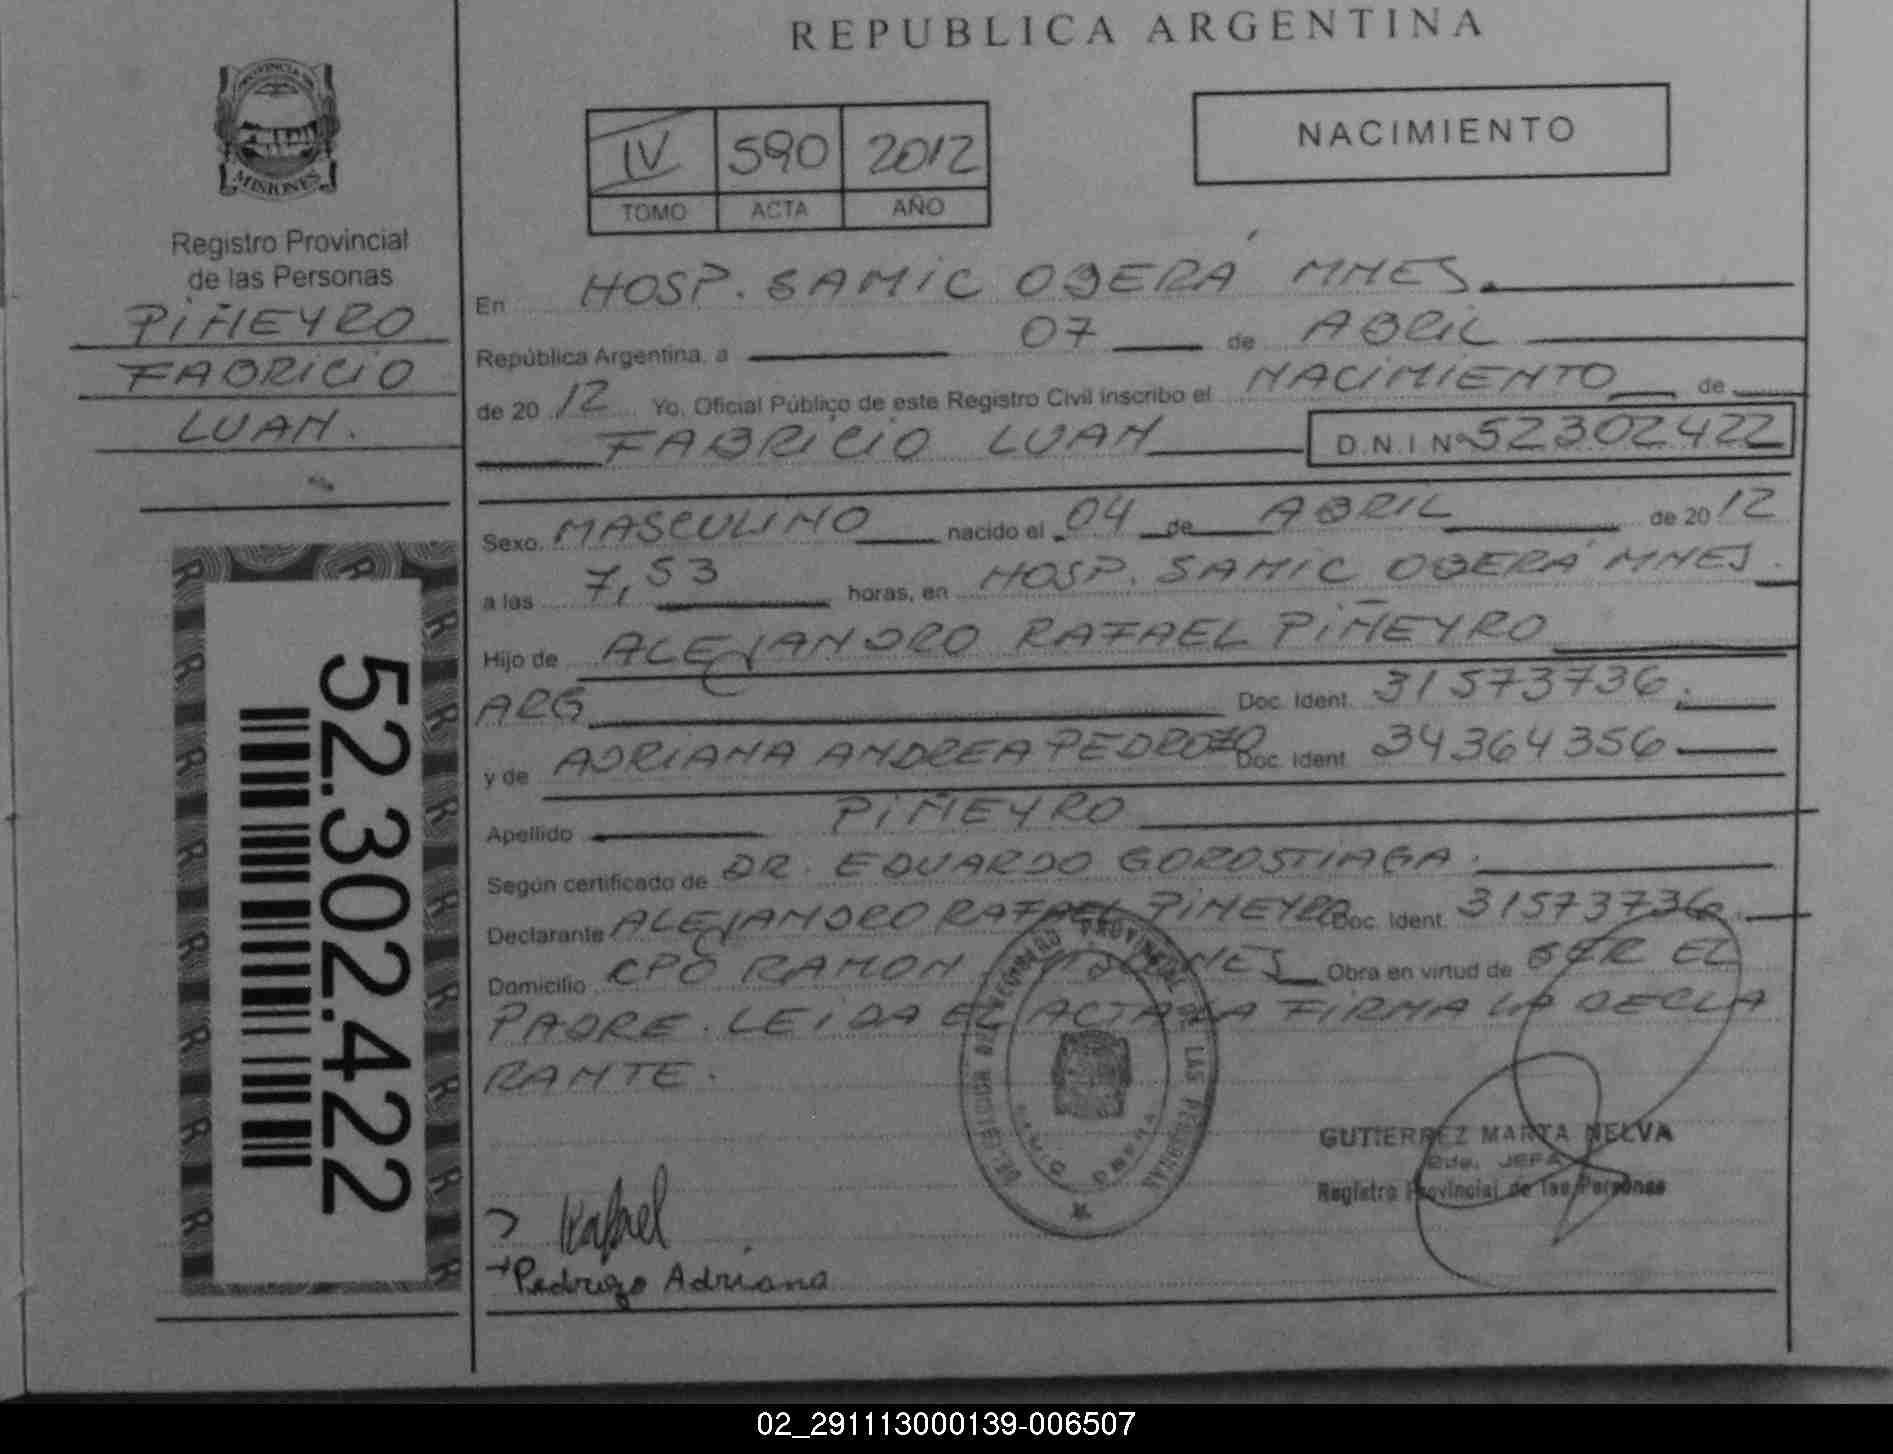 REPUBLICA ARGENTINA
PROVINCIA DE
MISIONES
Registro Provincial
de las Personas
PIÑEYRO
FABRICIO
LUAN.
52.302.422
IV 590 2012
TOMO ACTA AÑO
NACIMIENTO
En HOSP. SAMIC OBERÁ MNES.
República Argentina, a 07 de ABRIL
de 20 12 Yo, Oficial Público de este Registro Civil inscribo el NACIMIENTO de
FABRICIO LUAN D.N.I Nº 52302422
Sexo. MASCULINO nacido el 04 de ABRIL de 20 12
a las 7,53 horas, en HOSP. SAMIC OBERÁ MNES.
Hijo de ALEJANDRO RAFAEL PIÑEYRO
ARG Doc. Ident. 31573736.
y de ADRIANA ANDREA PEDROZO Doc. Ident. 34364356
Apellido PIÑEYRO
Según certificado de DR. EDUARDO GOROSTIAGA.
Declarante ALEJANDRO RAFAEL PIÑEYRO Doc. Ident. 31573736.
Domicilio CPO RAMON MNES Obra en virtud de SER EL
PADRE. LEIDA EL ACTA LA FIRMA LA DECLA
RANTE.
DELEGACION DEL REGISTRO PROVINCIAL DE LAS PERSONAS
SAMIC OBERA
GUTIERREZ MARTA NELVA
2da. JEFA
Registro Provincial de las Personas
Rafael
Pedrozo Adriana
02_291113000139-006507